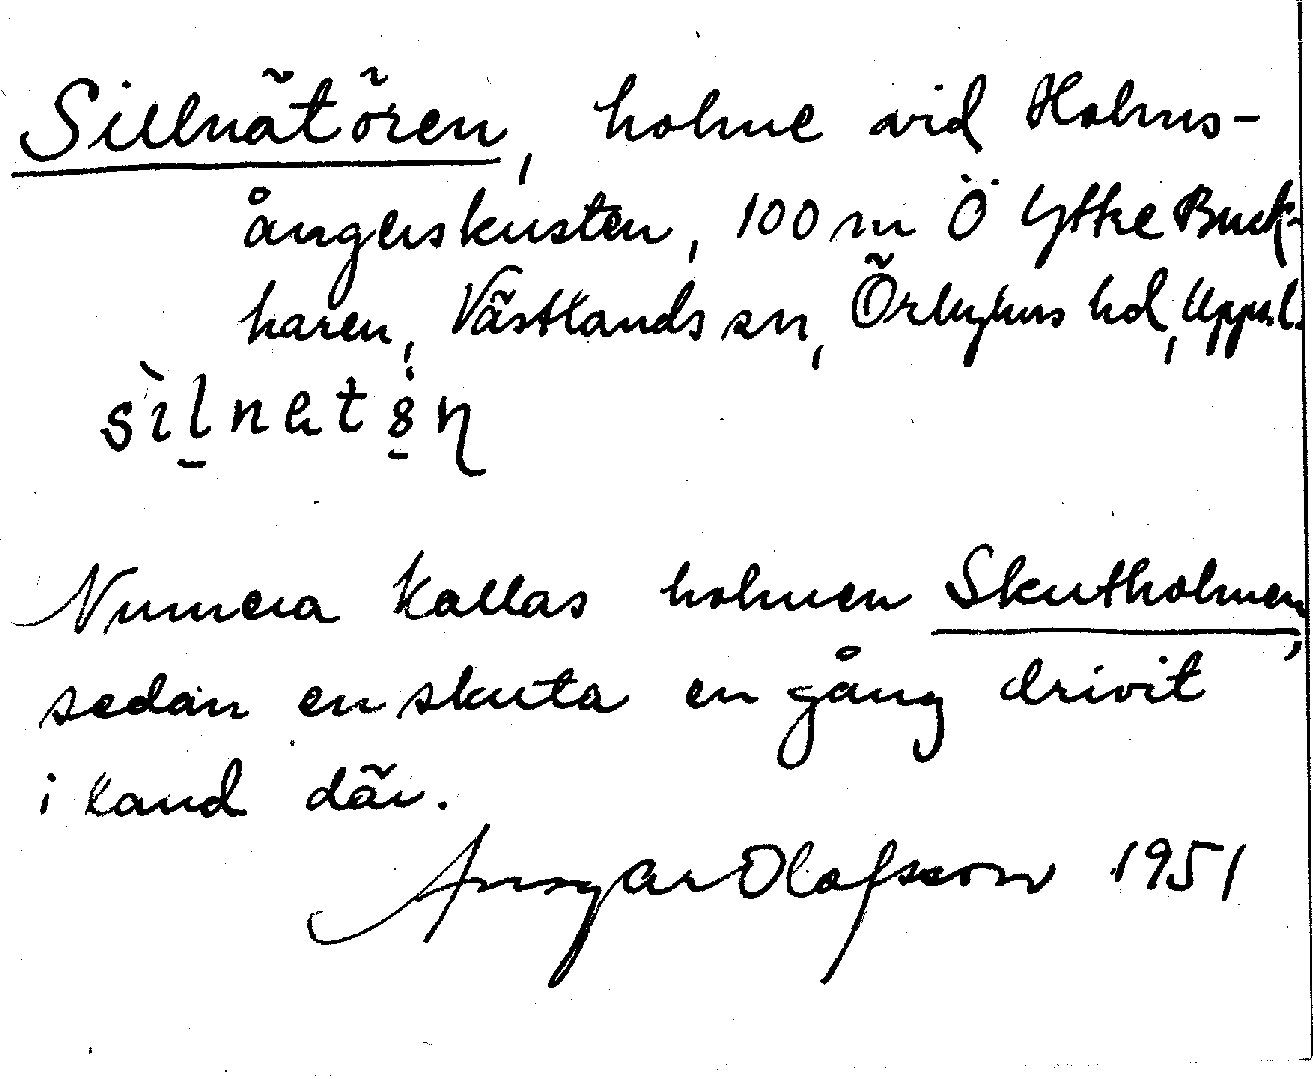 Sillnätören, holme vid Holms-
ångerskusten, 100 m Ö Yttre Buck-
haren, Västlands sn, Örbyhus hd, Uppl.
Numera kallas holmen Skutholmen,
sedan en skuta en gång drivit
i land där.
Ansgar Olafsson 1951